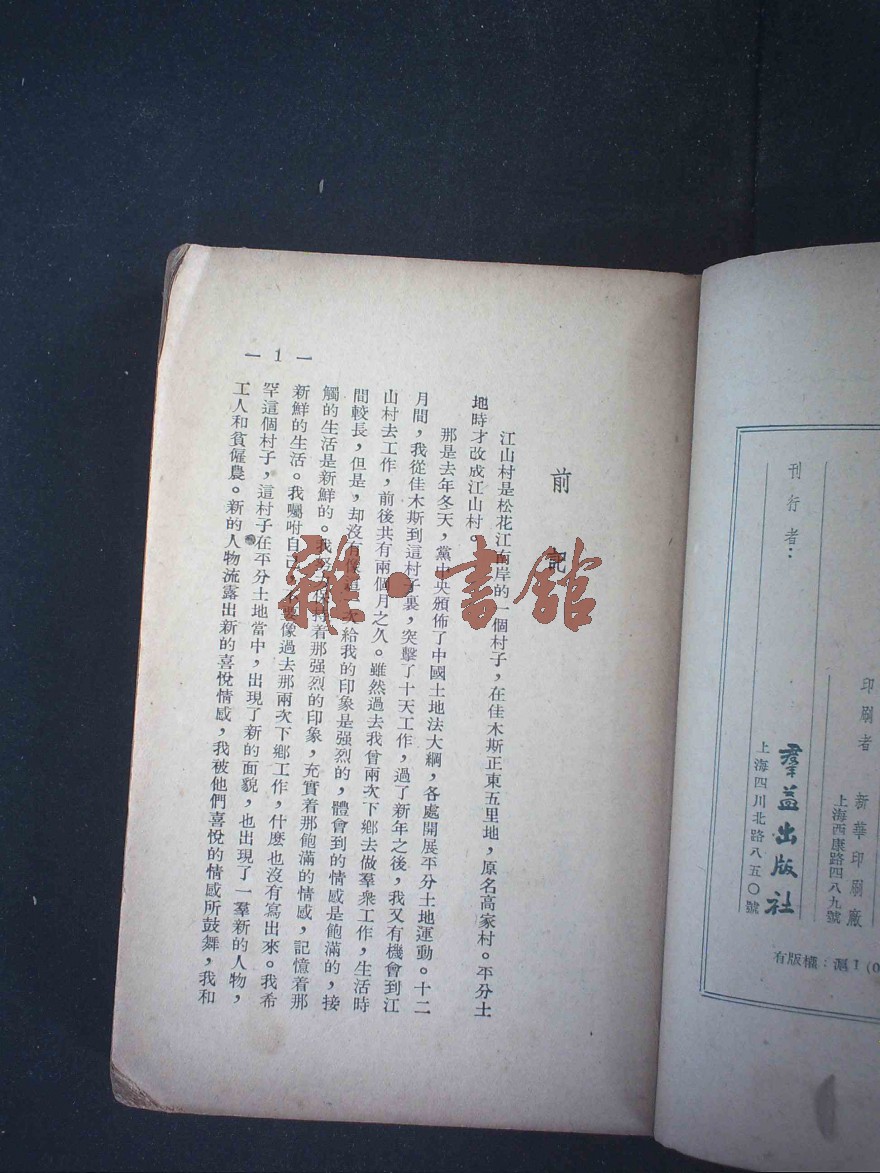 印刷者 新華印刷廠
上海西康路四八九號
刊行者： 羣益出版社
上海四川北路八五〇號
有版權：滬I(0
前記
江山村是松花江南岸的一個村子，在佳木斯正東五里地，原名高家村。平分土
地時才改成江山村。
那是去年冬天，黨中央頒佈了中國土地法大綱，各處開展平分土地運動。十二
月間，我從佳木斯到這村子裏，突擊了十天工作，過了新年之後，我又有機會到江
山村去工作，前後共有兩個月之久。雖然過去我曾兩次下鄉去做羣衆工作，生活時
間較長，但是，却沒有像這一次給我的印象是强烈的，體會到的情感是飽滿的，接
觸的生活是新鮮的。我保持着那强烈的印象，充實着那飽滿的情感，記憶着那
新鮮的生活。我囑咐自己，不要像過去那兩次下鄉工作，什麽也沒有寫出來。我希
罕這個村子，這村子在平分土地當中，出現了新的面貌，也出現了一羣新的人物，
工人和貧僱農。新的人物流露出新的喜悅情感，我被他們喜悅的情感所鼓舞，我和
— 1 —
雜·書館